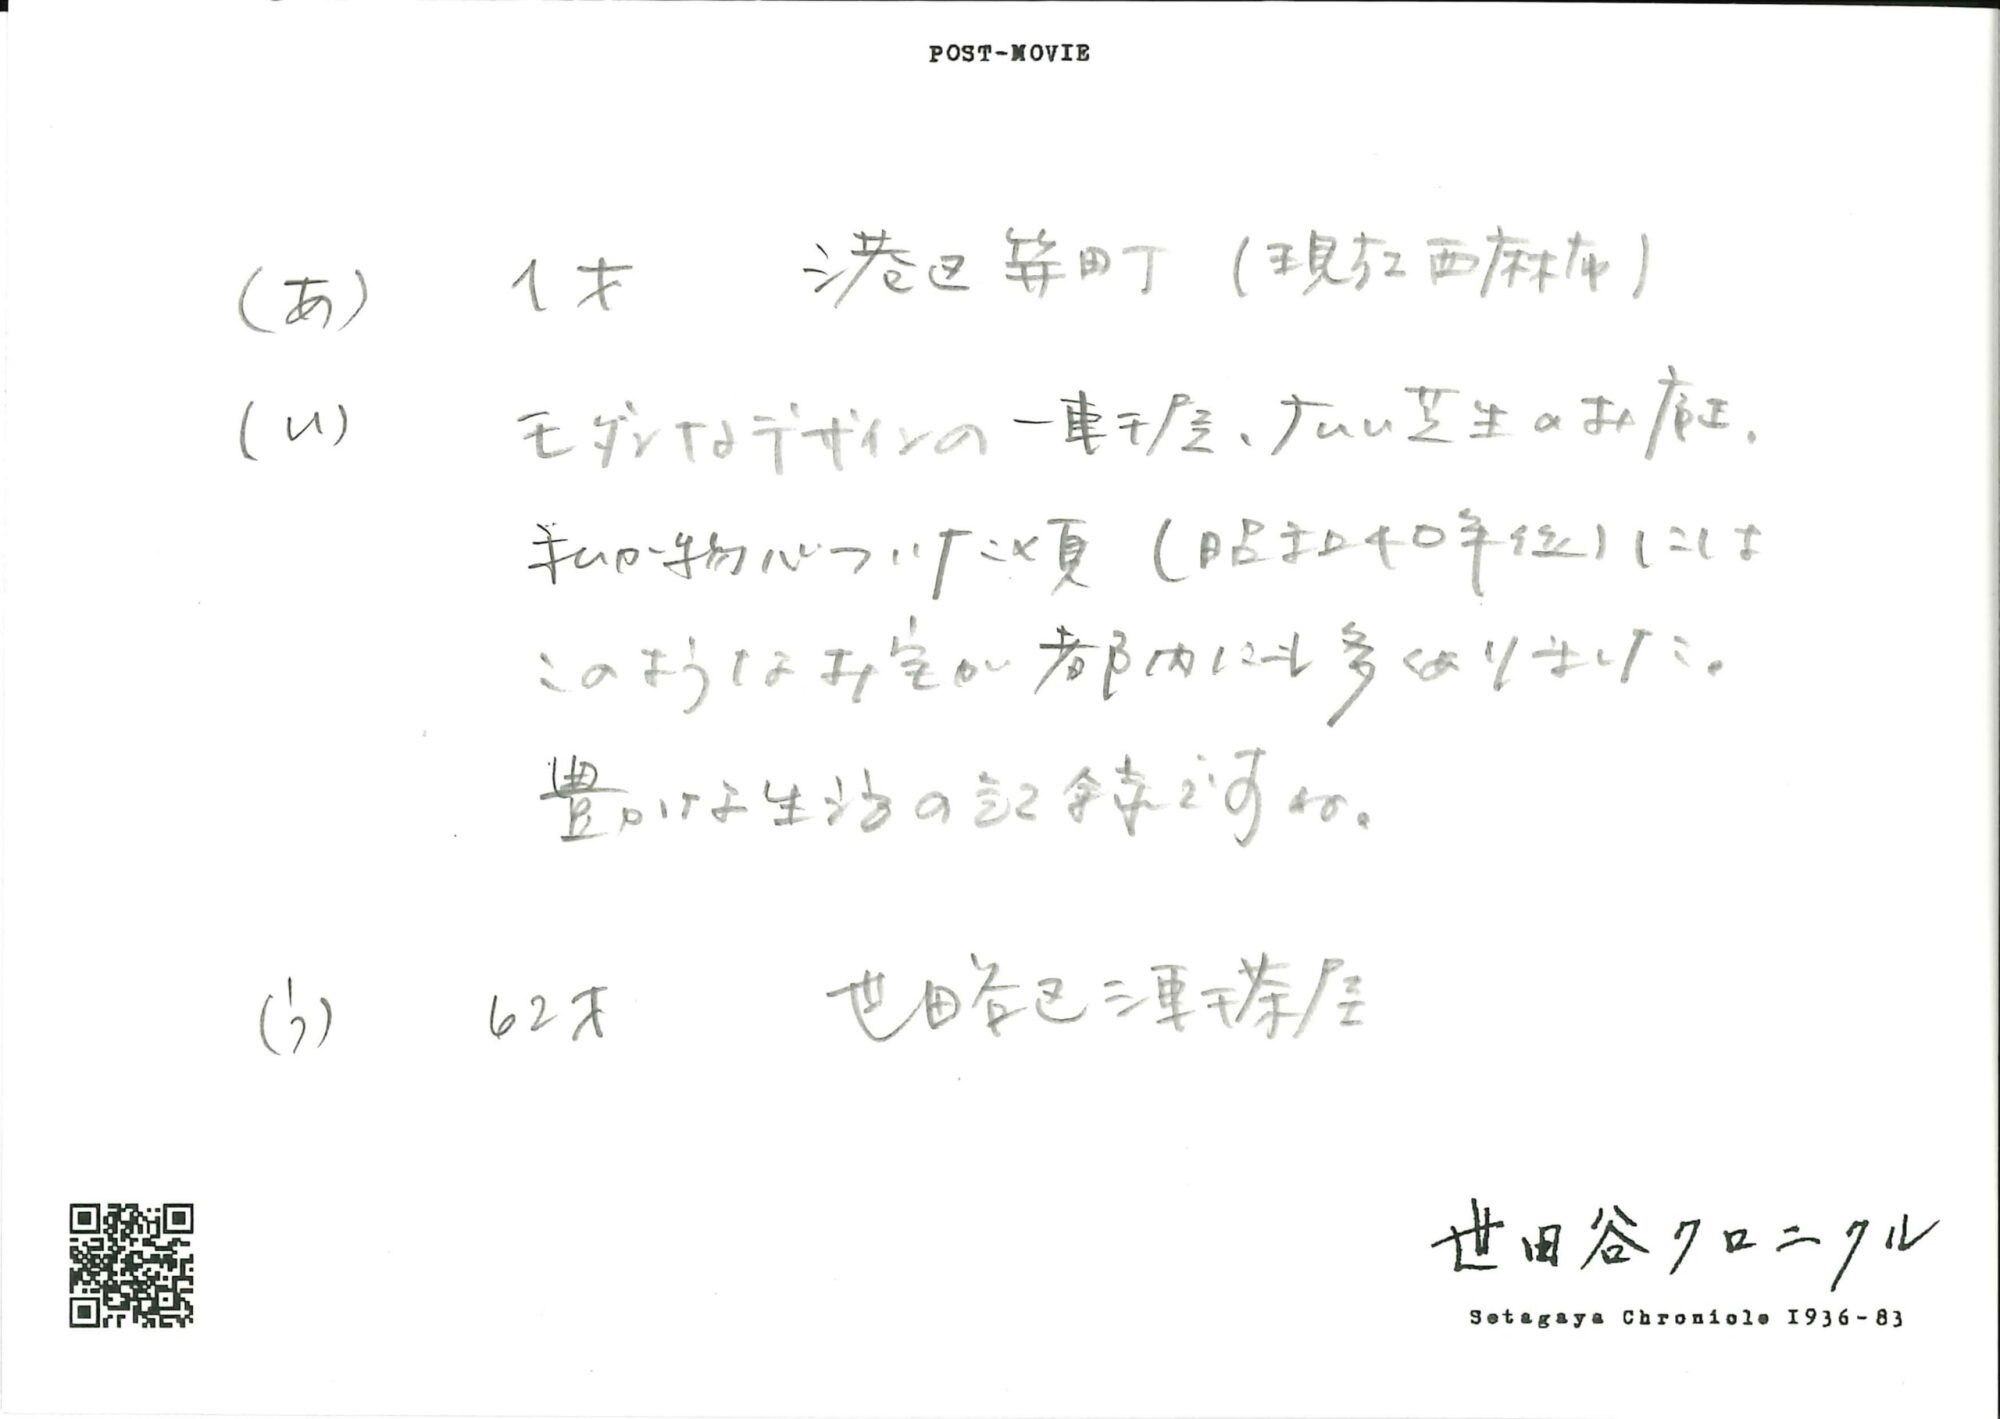 POST-MOVIE
(あ) 1才 港区笄町(現在西麻布)
(い) モダンなデザインの一軒屋、広い芝生のお庭.
私が物心ついた頃(昭和40年後)には
このようなお宅が都内にも多くありました。
豊かな生活の記録ですね。
(う) 62才 世田谷区三軒茶屋
世田谷クロニクル
Setagaya Chronicle 1936-83